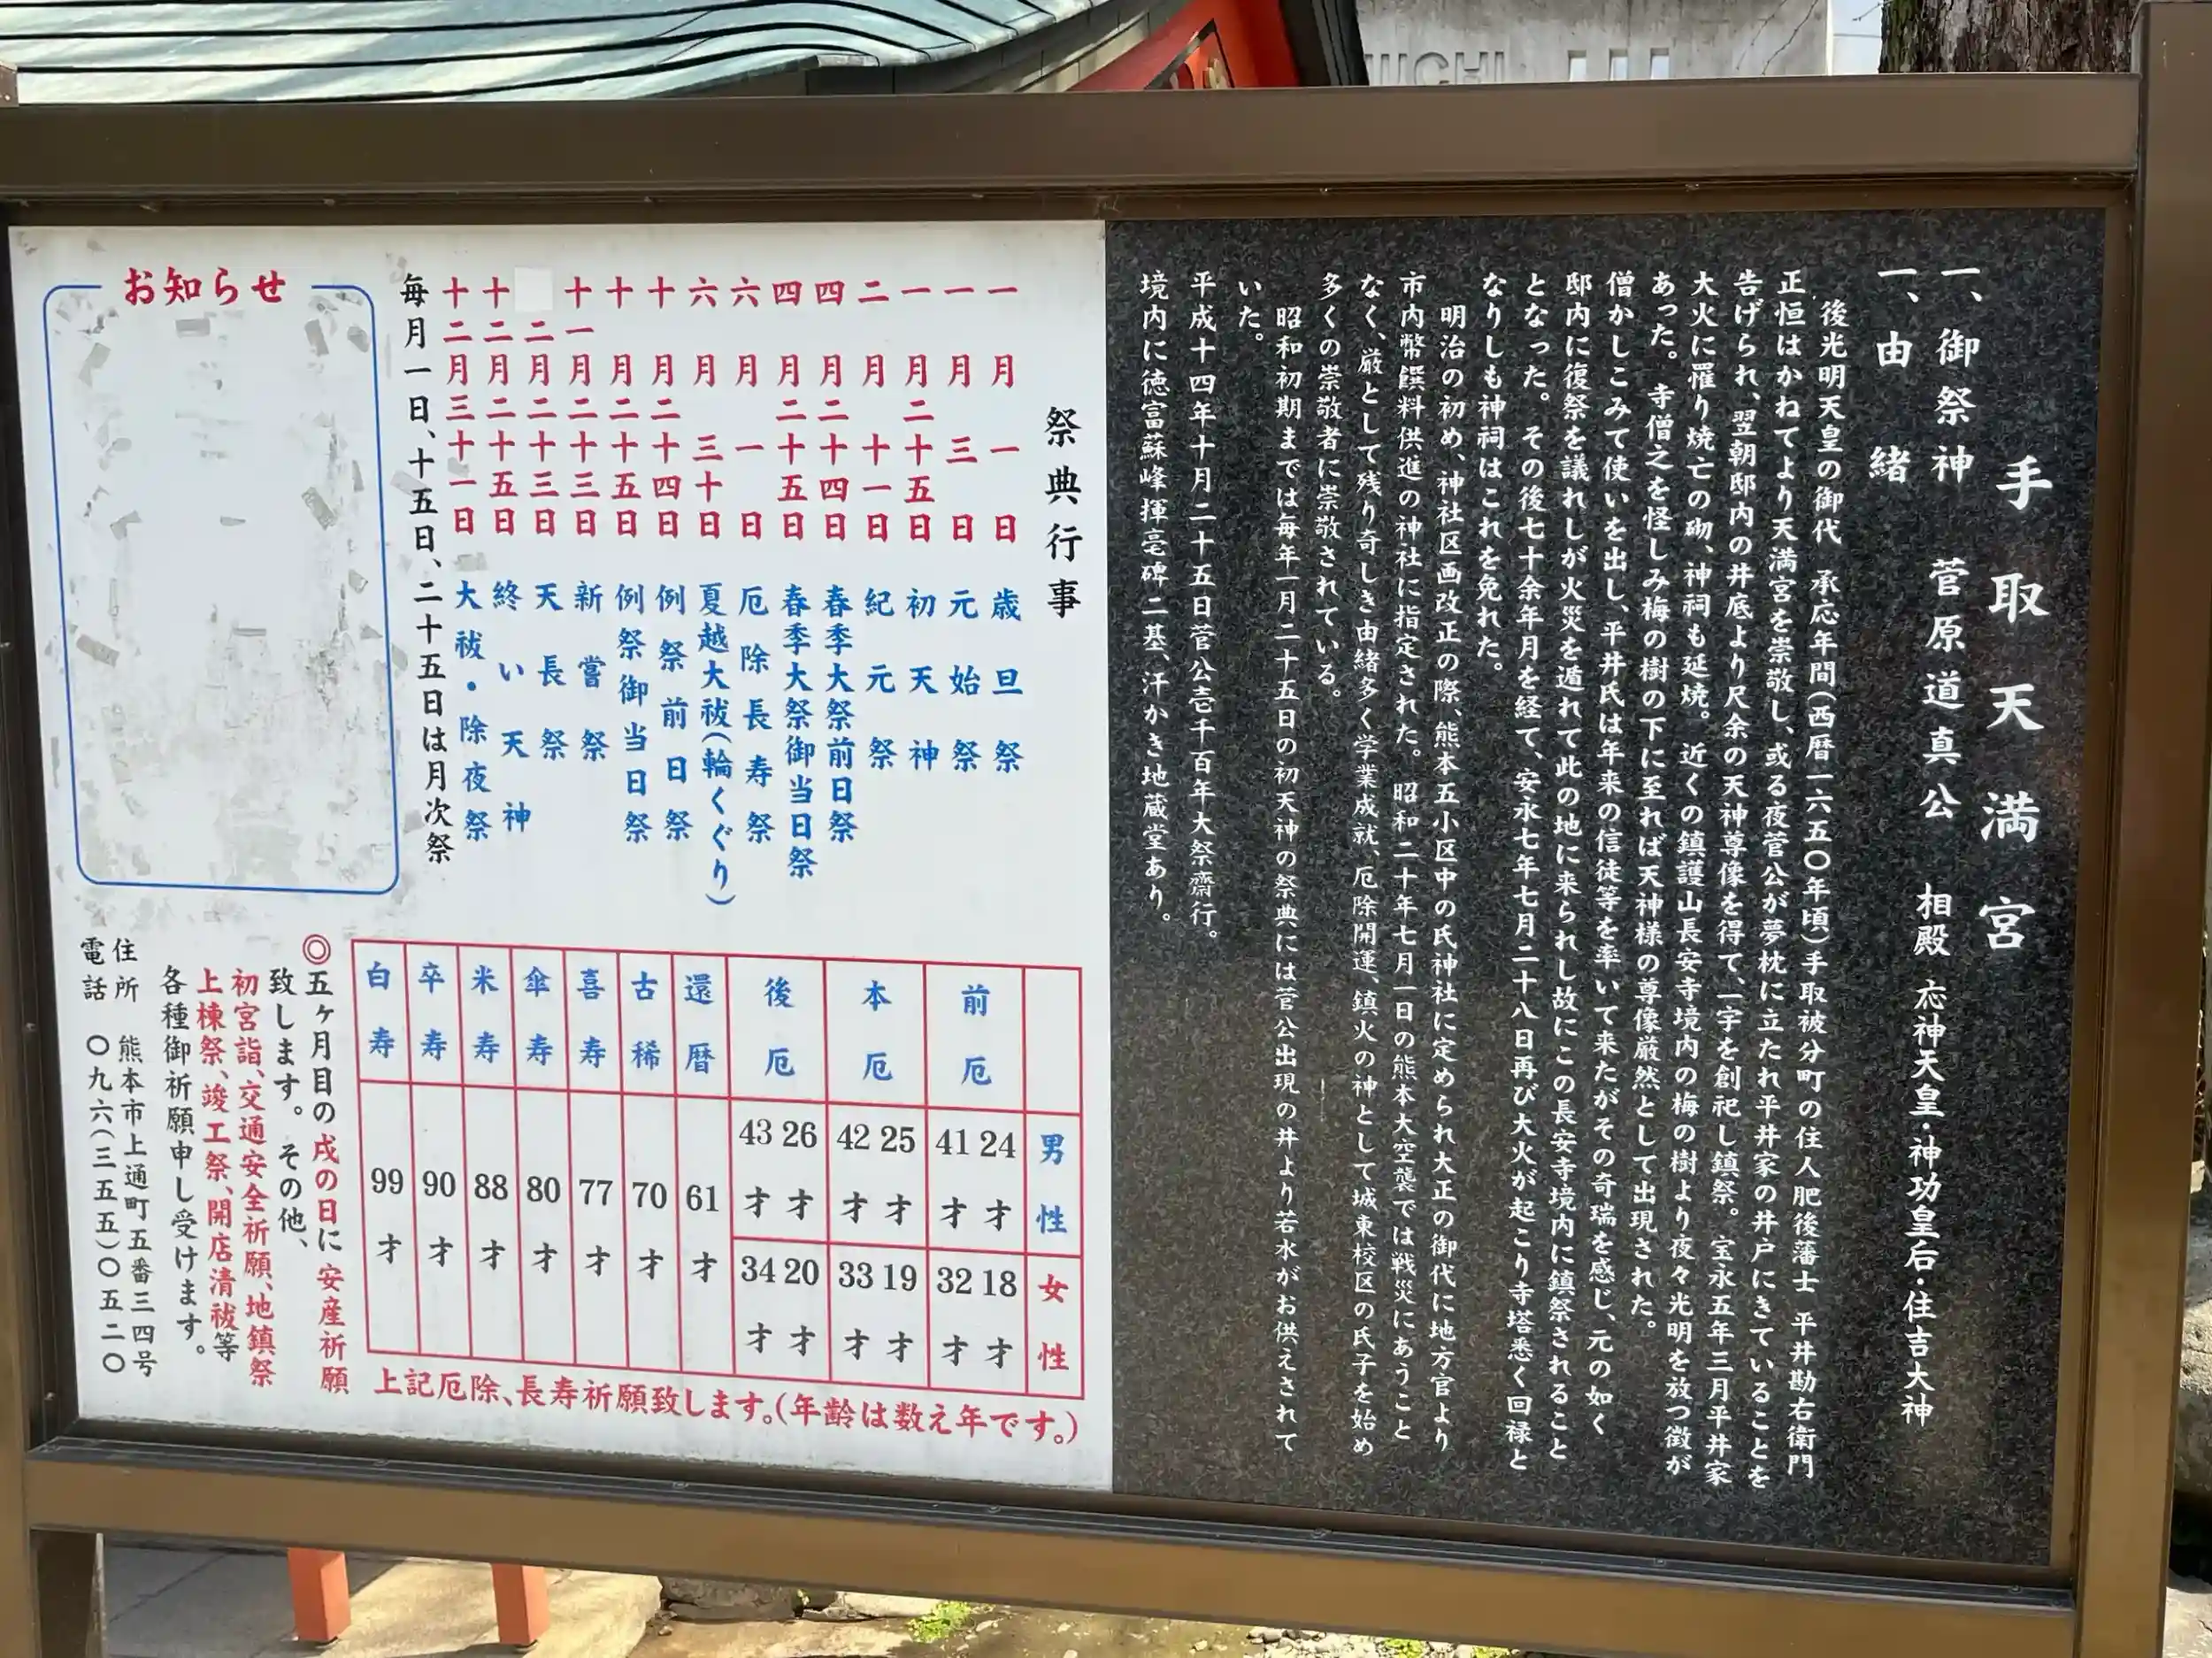 UCHI
手取天満宮
一、御祭神　菅原道真公　相殿　応神天皇・神功皇后・住吉大神
一、由　緒
後光明天皇の御代　承応年間(西暦一六五〇年頃)手取被分町の住人肥後藩士　平井勘右衛門
正恒はかねてより天満宮を崇敬し、或る夜菅公が夢枕に立たれ平井家の井戸にきていることを
告げられ、翌朝邸内の井底より尺余の天神尊像を得て、一宇を創祀し鎮祭。宝永五年三月平井家
大火に罹り焼亡の砌、神祠も延焼。近くの鎮護山長安寺境内の梅の樹より夜々光明を放つ徴が
あった。寺僧之を怪しみ梅の樹の下に至れば天神様の尊像厳然として出現された。
僧かしこみて使いを出し、平井氏は年来の信徒等を率いて来たがその奇瑞を感じ、元の如く
邸内に復祭を議れしが火災を遁れて此の地に来られし故にこの長安寺境内に鎮祭されること
となった。その後七十余年月を経て、安永七年七月二十八日再び大火が起こり寺塔悉く回禄と
なりしも神祠はこれを免れた。
明治の初め、神社区画改正の際、熊本五小区中の氏神社に定められ大正の御代に地方官より
市内幣饌料供進の神社に指定された。昭和二十年七月一日の熊本大空襲では戦災にあうこと
なく、厳として残り奇しき由緒多く学業成就、厄除開運、鎮火の神として城東校区の氏子を始め
多くの崇敬者に崇敬されている。
昭和初期までは毎年一月二十五日の初天神の祭典には菅公出現の井より若水がお供えされて
いた。
平成十四年十月二十五日菅公壱千百年大祭齋行。
境内に徳富蘇峰揮毫碑二基、汗かき地蔵堂あり。
祭典行事
一月一日　歳旦祭
一月三日　元始祭
一月二十五日　初天神
二月十一日　紀元祭
四月二十四日　春季大祭前日祭
四月二十五日　春季大祭御当日祭
六月一日　厄除長寿祭
六月三十日　夏越大祓(輪くぐり)
十月二十四日　例祭前日祭
十月二十五日　例祭御当日祭
十一月二十三日　新嘗祭
二月二十三日　天長祭
十二月二十五日　終い天神
十二月三十一日　大祓・除夜祭
毎月一日、十五日、二十五日は月次祭
お知らせ
男性
女性
前厄
24才　41才
18才　32才
本厄
25才　42才
19才　33才
後厄
26才　43才
20才　34才
還暦　61才
古稀　70才
喜寿　77才
傘寿　80才
米寿　88才
卒寿　90才
白寿　99才
上記厄除、長寿祈願致します。(年齢は数え年です。)
◎五ヶ月目の戌の日に安産祈願
致します。その他、
初宮詣、交通安全祈願、地鎮祭
上棟祭、竣工祭、開店清祓等
各種御祈願申し受けます。
住所　熊本市上通町五番三四号
電話　〇九六(三五五)〇五二〇